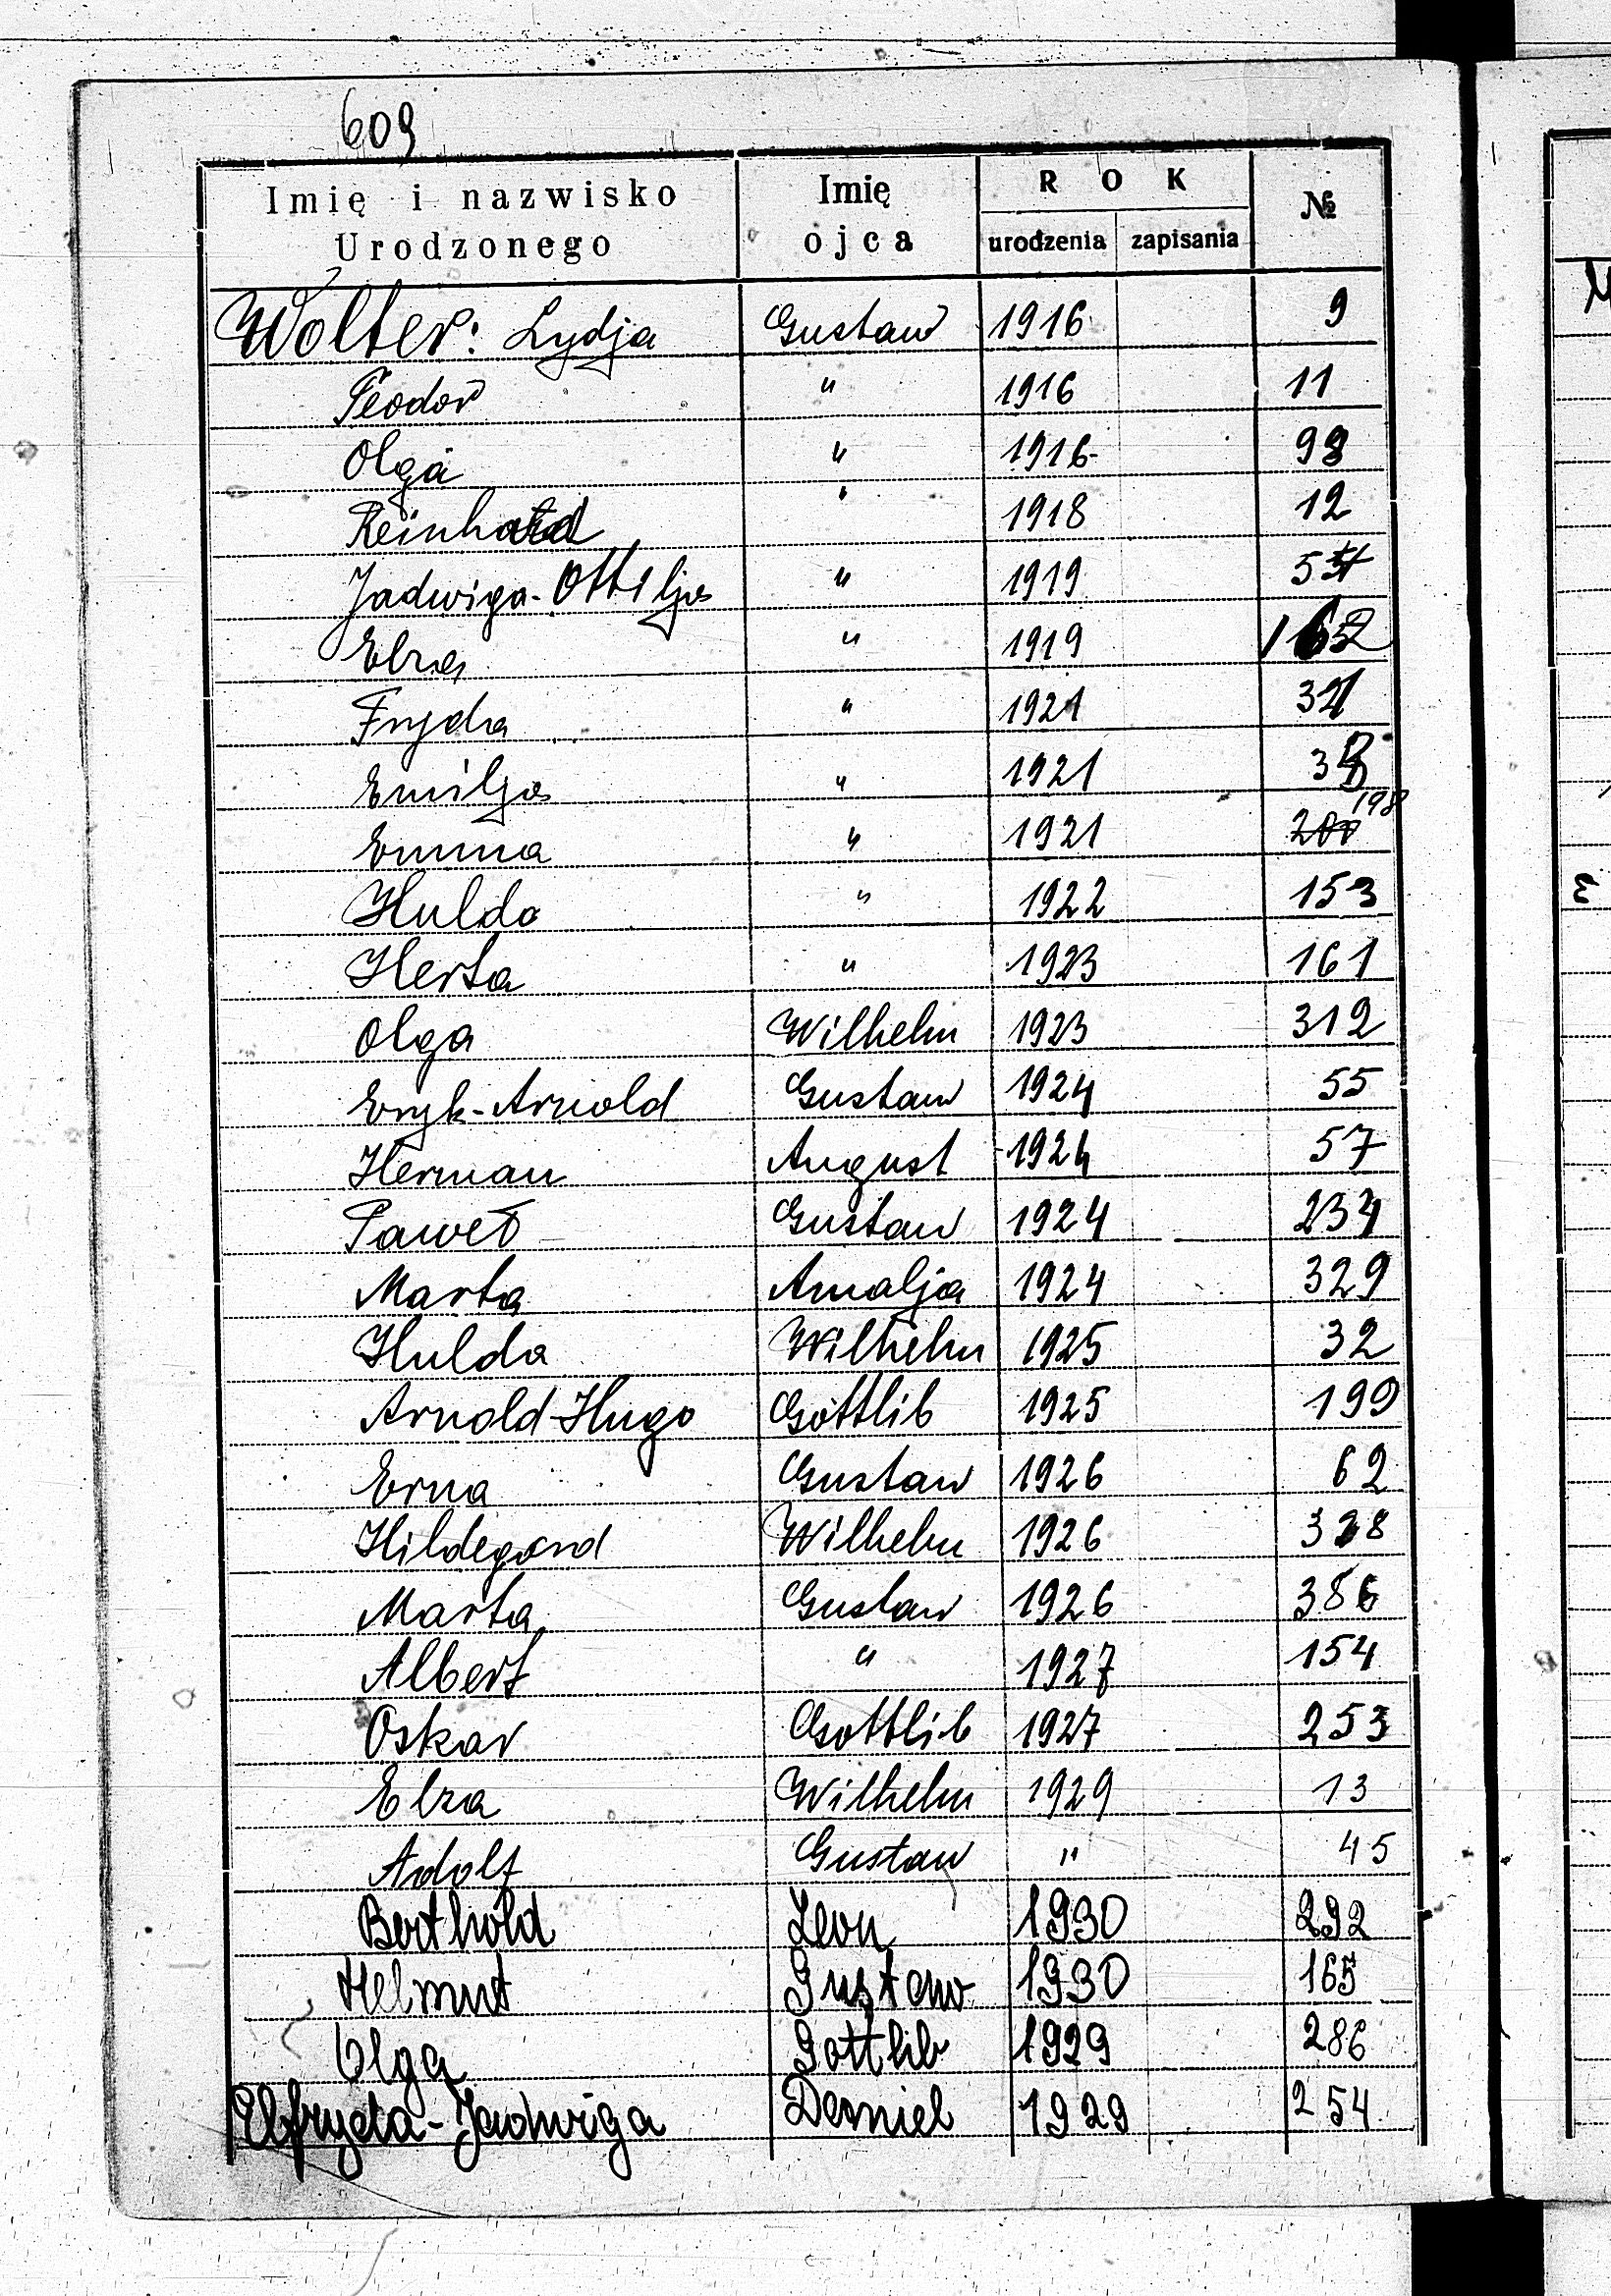 609
Imię i nazwisko Urodzonego Imię ojca ROK urodzenia zapisania №
Wolter: Lydja Gustaw 1916 9
Teodor " 1916 11
Olga " 1916 98
Reinhard " 1918 12
Jadwiga-Ottilja " 1919 54
Elza " 1919 162
Fryda " 1921 31
Emilja " 1921 38
Emma " 1921 200 198
Hulda " 1922 153
Herta " 1923 161
Olga Wilhelm 1923 312
Eryk-Arnold Gustaw 1924 55
Herman August 1924 57
Paweł Gustaw 1924 234
Marta Amalja 1924 329
Hulda Wilhelm 1925 32
Arnold-Hugo Gottlib 1925 199
Erna Gustaw 1926 62
Hildegard Wilhelm 1926 328
Marta Gustaw 1926 386
Albert " 1927 154
Oskar Gottlib 1927 253
Elza Wilhelm 1929 13
Adolf Gustaw " 45
Berthold Leon 1930 292
Helmut Gustaw 1930 165
Olga Gottlib 1929 286
Elfryda-Jadwiga Daniel 1929 254